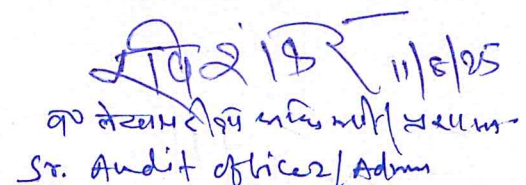 11/8/25
व० लेखापरीक्षा अधिकारी/प्रशासन
Sr. Audit officer/Admn